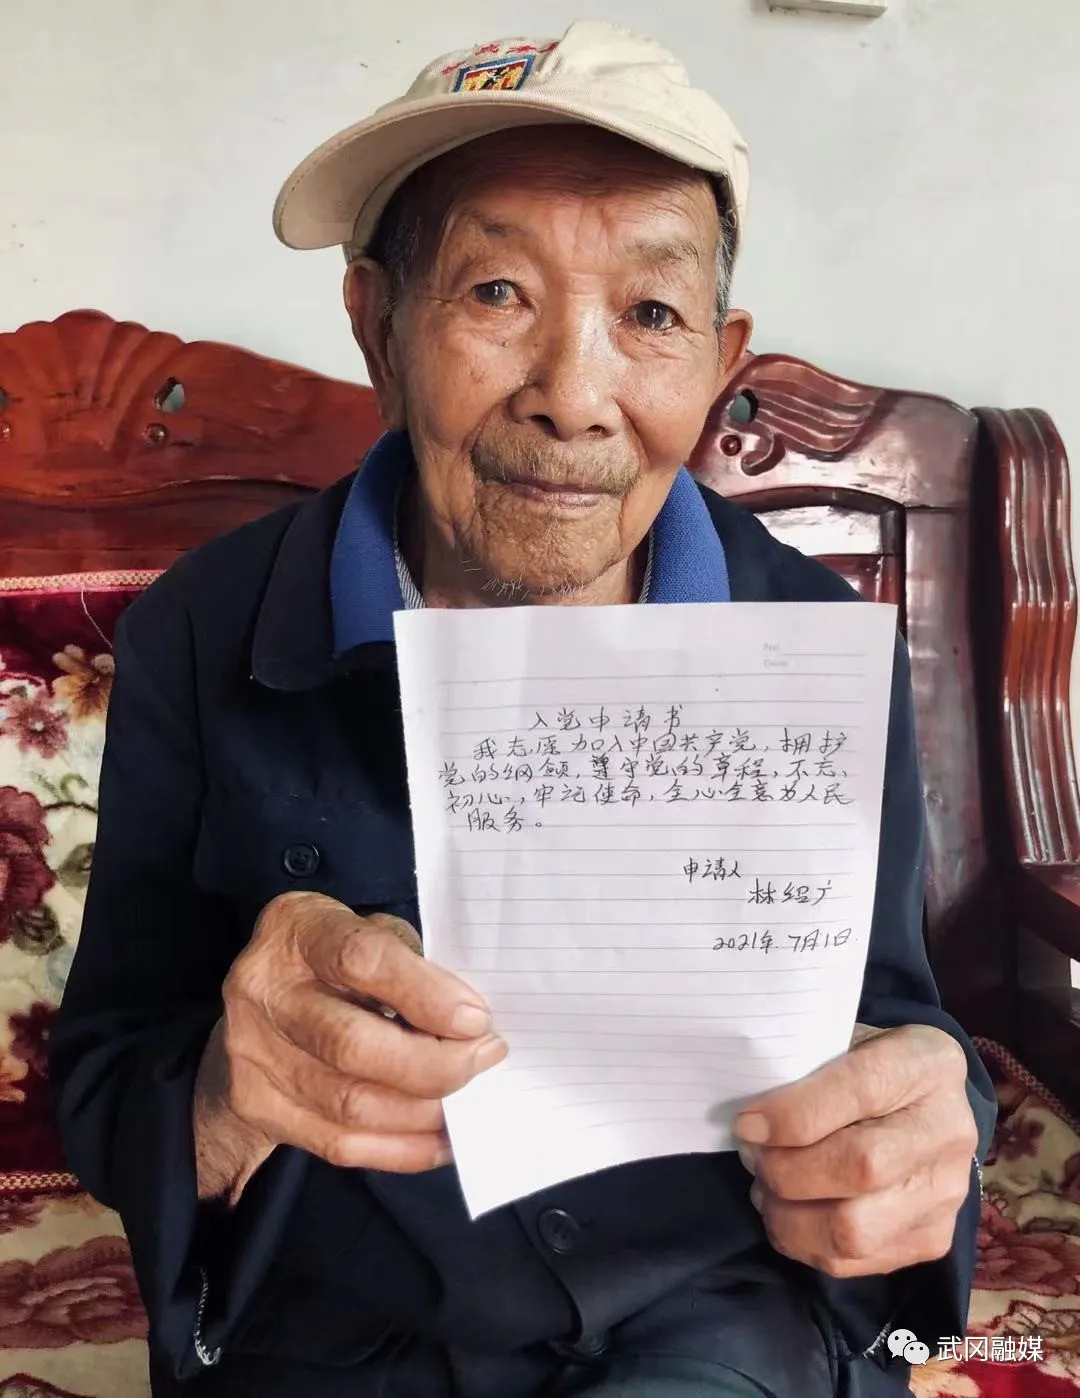 No.
Date
入党申请书
我志愿加入中国共产党，拥护
党的纲领，遵守党的章程，不忘
初心，牢记使命，全心全意为人民
服务。
申请人
林绍广
2021年7月1日.
武冈融媒